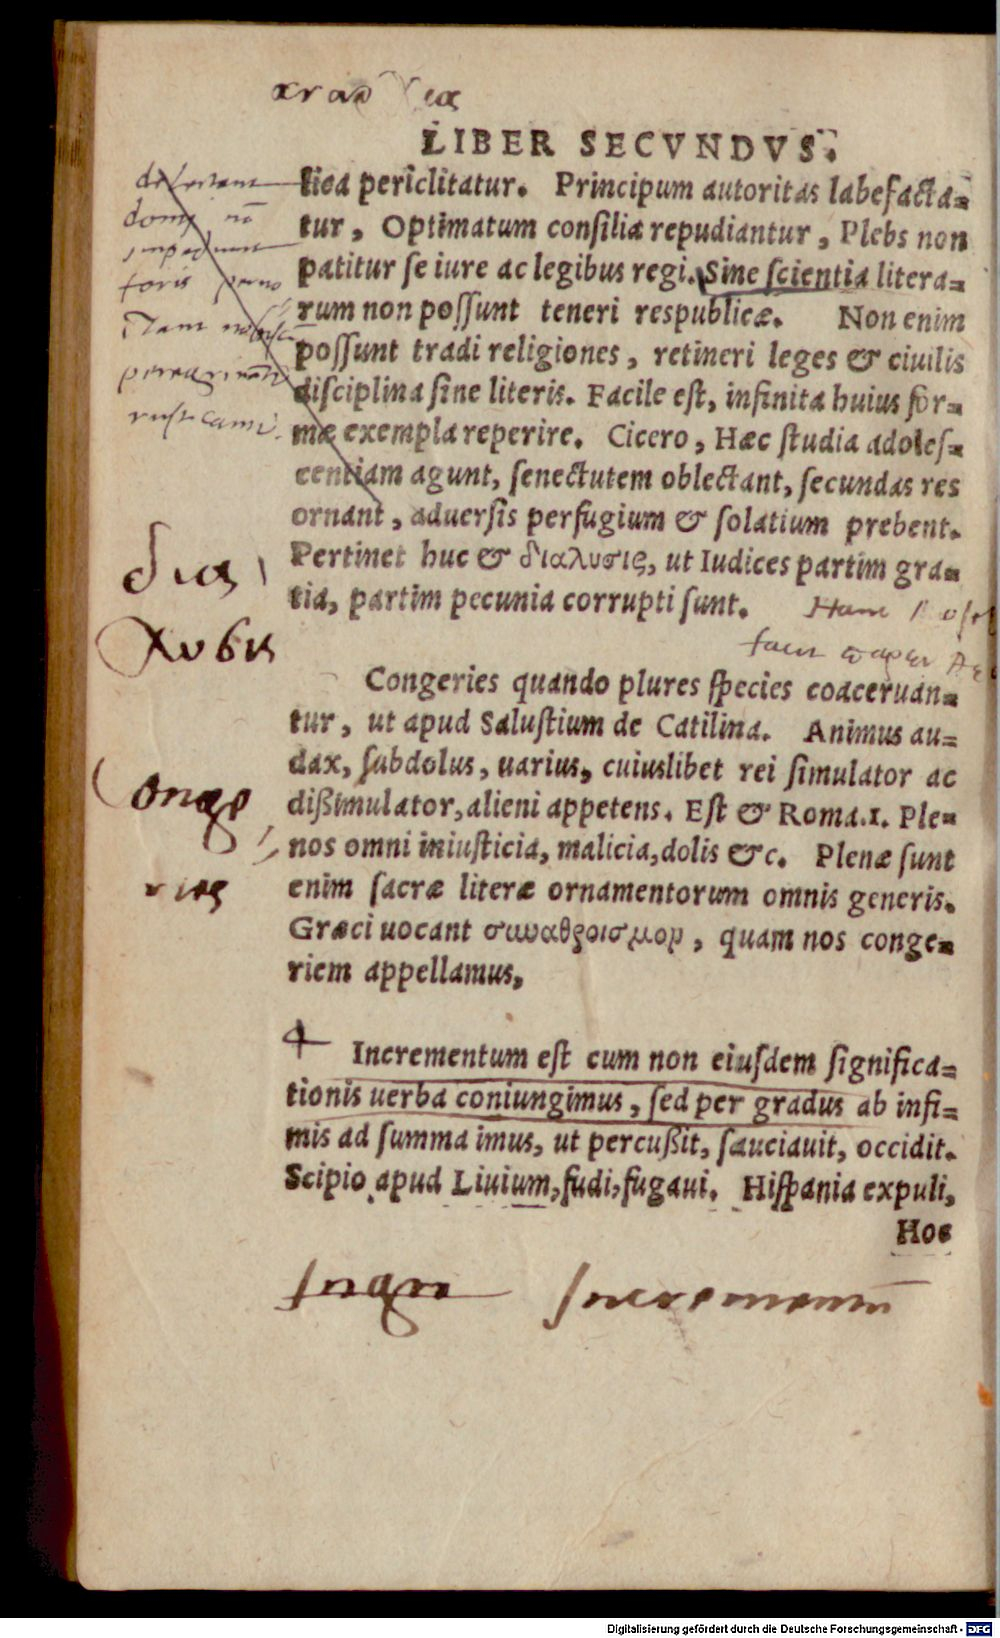 LIBER SECVNDVS.
lica periclitatur. Principum autoritas labefacta=
tur, Optimatum consilia repudiantur, Plebs non
patitur se iure ac legibus regi. Sine scientia litera=
rum non possunt teneri respublicæ. Non enim
possunt tradi religiones, retineri leges & ciuilis
disciplina sine literis. Facile est, infinita huius for=
mæ exempla reperire. Cicero, Hæc studia adoles=
centiam agunt, senectutem oblectant, secundas res
ornant, aduersis perfugium & solatium prebent.
Pertinet huc & διαλυσις, ut Iudices partim gra=
tia, partim pecunia corrupti sunt.
domi
foris
rusticamur
δια
λυσις
Congeries quando plures species coaceruan=
tur, ut apud Salustium de Catilina. Animus au=
dax, subdolus, uarius, cuiuslibet rei simulator ac
dißimulator, alieni appetens. Est & Roma.1. Ple=
nos omni iniusticia, malicia, dolis &c. Plenæ sunt
enim sacræ literæ ornamentorum omnis generis.
Græci uocant συναθροισμον, quam nos conge=
riem appellamus.
Conge
ries
4
Incrementum est cum non eiusdem significa=
tionis uerba coniungimus, sed per gradus ab infi=
mis ad summa imus, ut percußit, sauciauit, occidit.
Scipio apud Liuium, fudi, fugaui. Hispania expuli,
Hoc